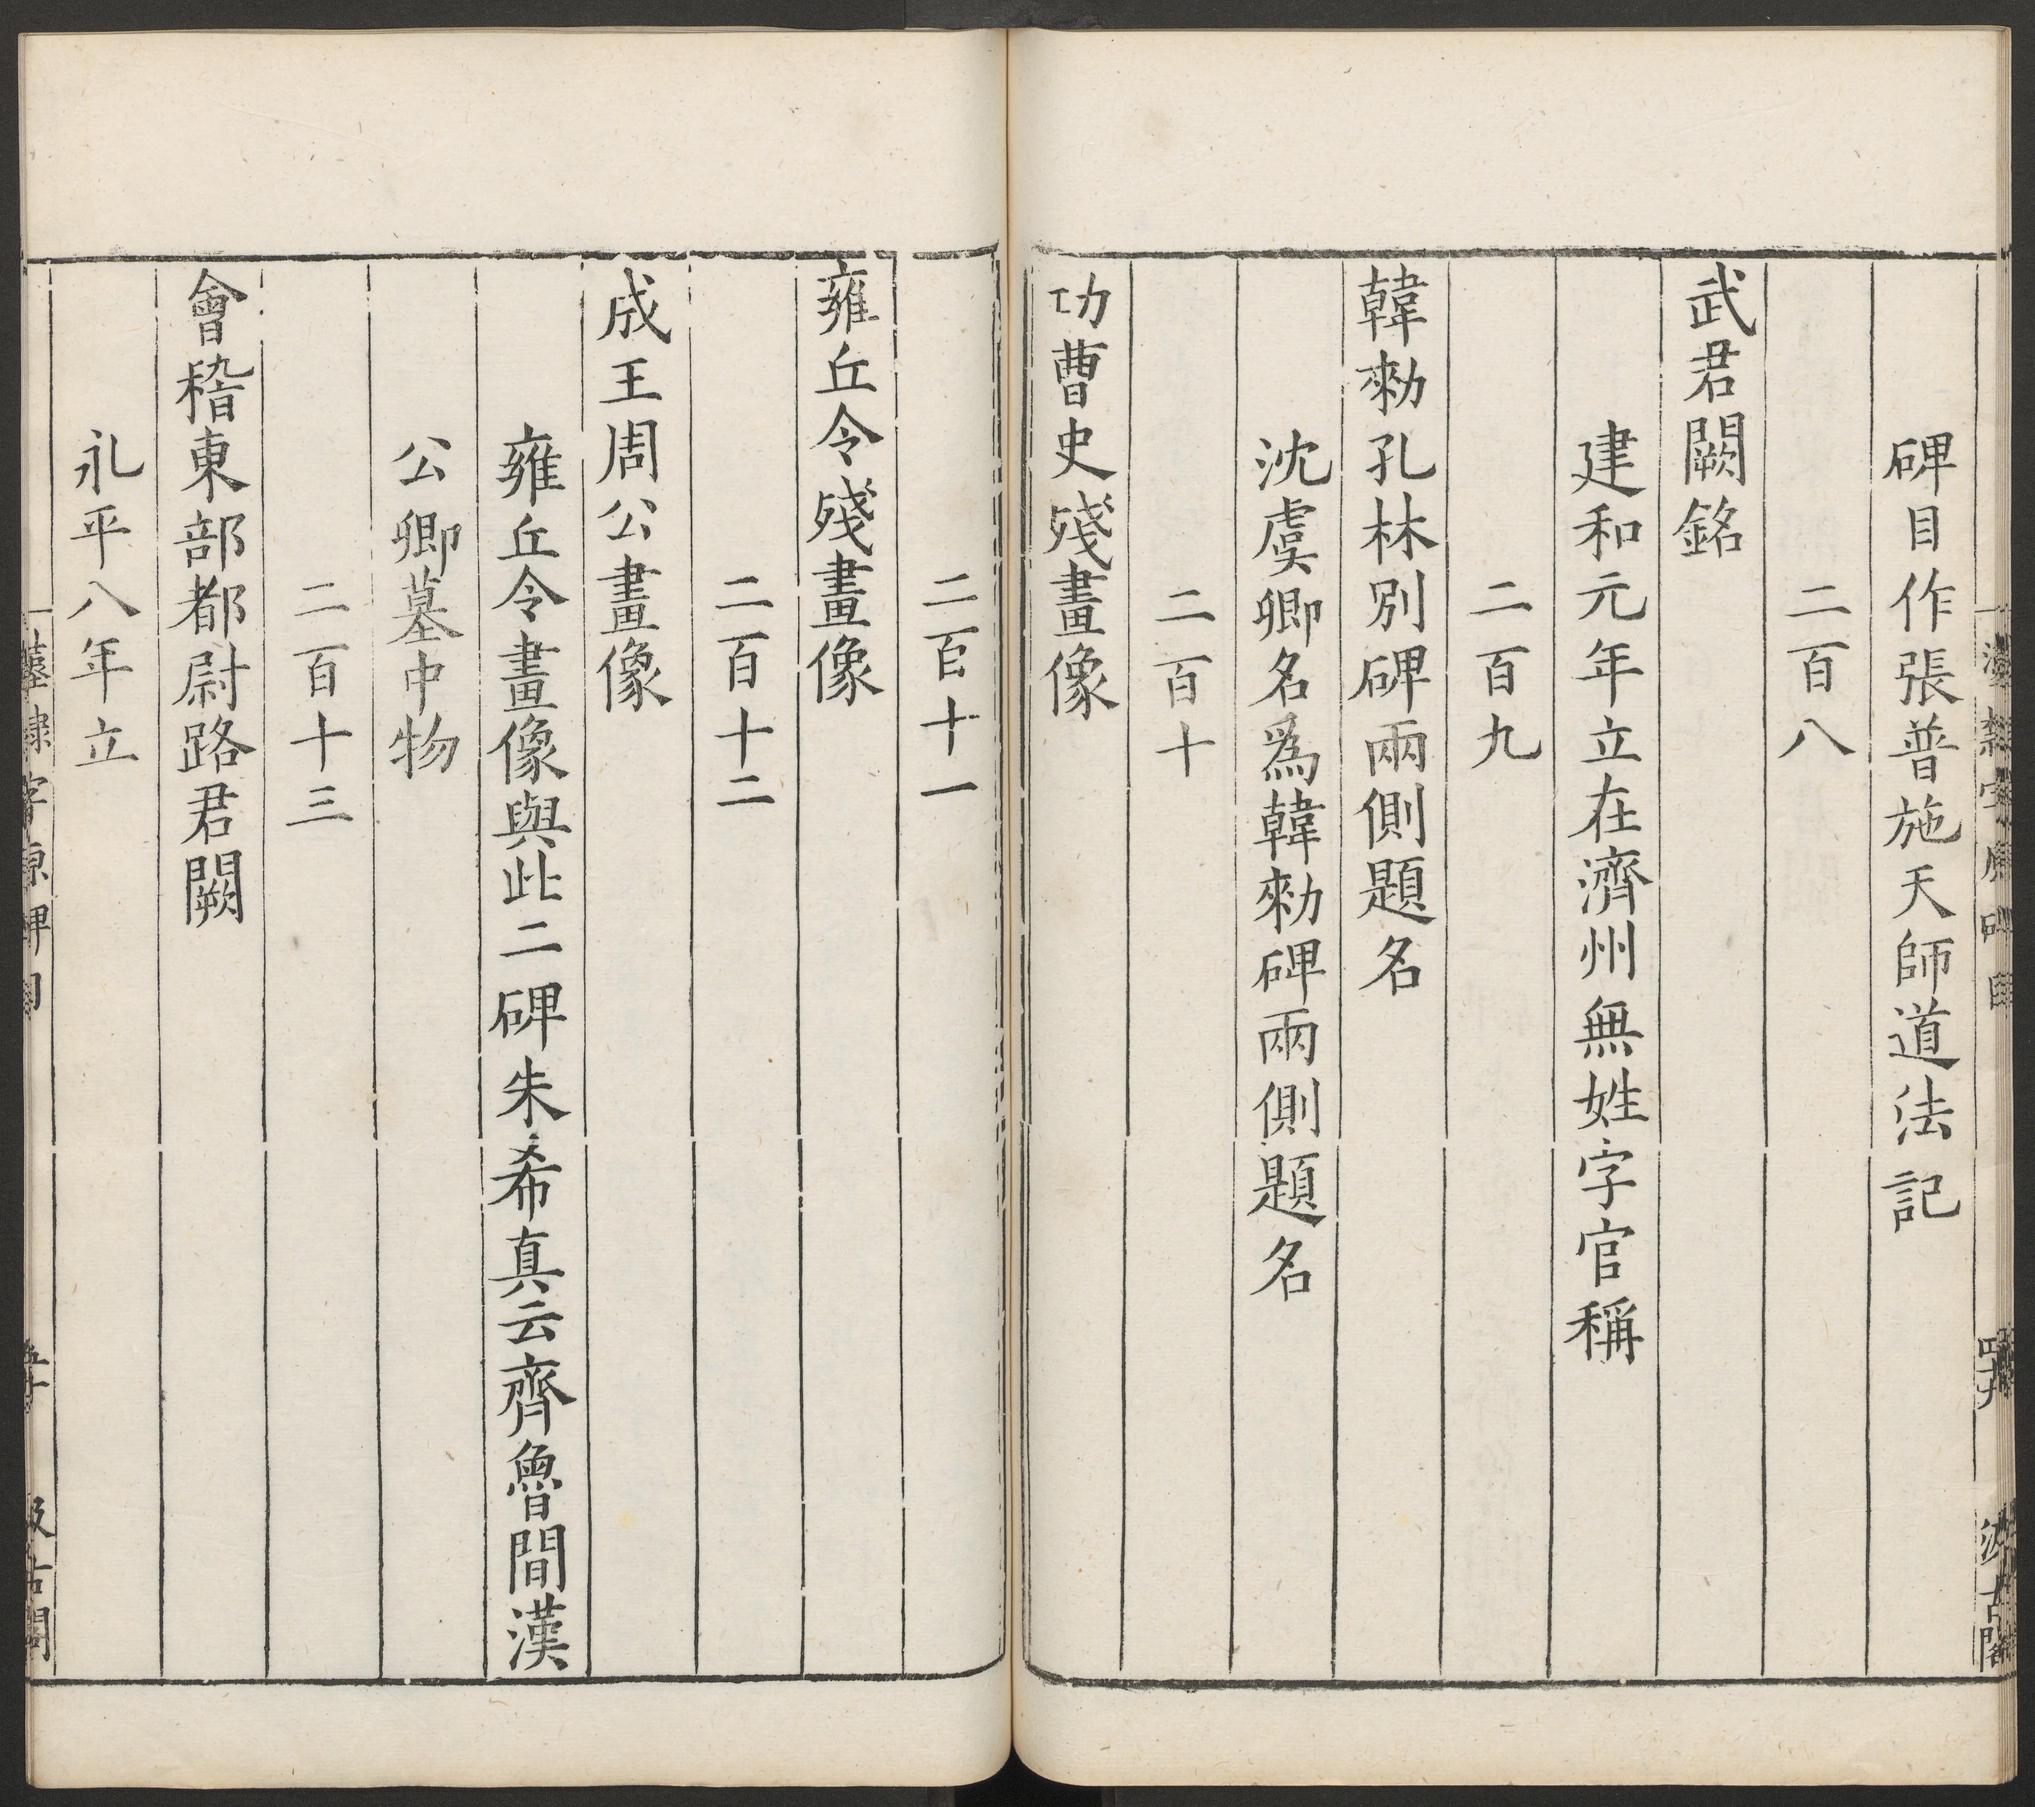 碑目作張普施天師道法記
二百八
武君闕銘
建和元年立在濟州無姓字官稱
二百九
韓勑孔林別碑兩側題名
沈虞卿名爲韓勑碑兩側題名
二百十
功曹史殘畫像
二百十一
雍丘令殘畫像
二百十二
成王周公畫像
雍丘令畫像與此二碑朱希真云齊魯間漢
公卿墓中物
二百十三
會稽東部都尉路君闕
永平八年立